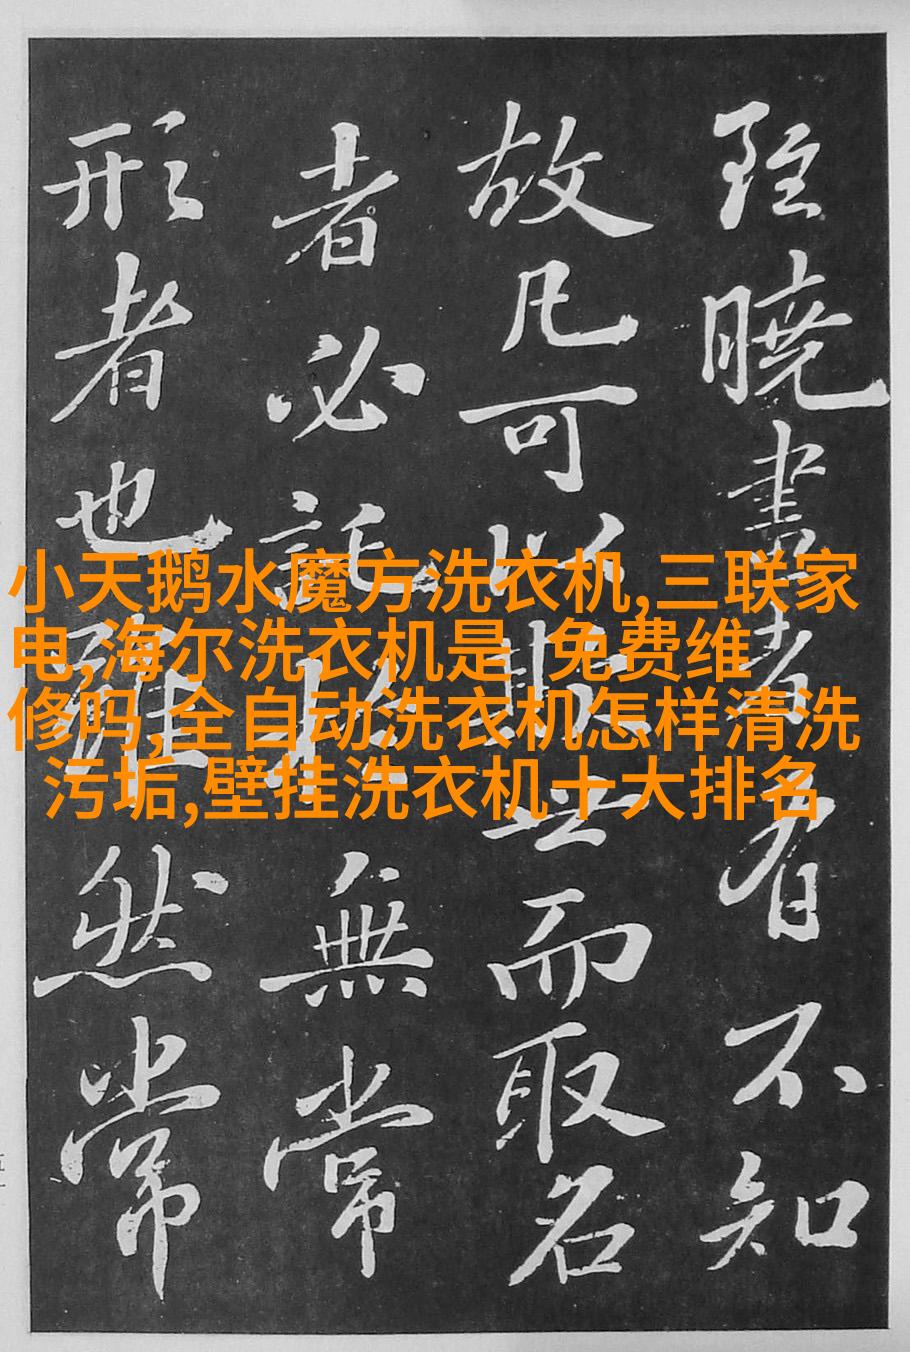 雖曉畫者有不知
故凡可以欺世而取名
者必託於無常
形者也雖然常
小天鹅水魔方洗衣机,三联家
电,海尔洗衣机是 免费维
修吗,全自动洗衣机怎样清洗
污垢,壁挂洗衣机十大排名